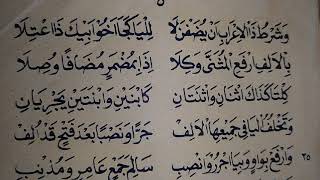 ٥
وَشَرْطُ ذَا الْإِعْرَابِ أَنْ يُضَفْنَ لَا لِلْيَا كَجَا أَخُو أَبِيكَ ذَا اعْتِلَا
بِالْأَلِفِ ارْفَعِ الْمُثَنَّى وَكِلَا إِذَا بِمُضْمَرٍ مُضَافًا وُصِلَا
كِلْتَا كَذَاكَ اثْنَانِ وَاثْنَتَانِ كَابْنَيْنِ وَابْنَتَيْنِ يَجْرِيَانِ
وَتَخْلُفُ الْيَا فِي جَمِيعِهَا الْأَلِفْ جَرًّا وَنَصْبًا بَعْدَ فَتْحٍ قَدْ أُلِفْ
وَارْفَعْ بِوَاوٍ وَبِيَا اجْرُرْ وَانْصِبِ سَالِمَ جَمْعِ عَامِرٍ وَمُذْنِبِ ٣٥